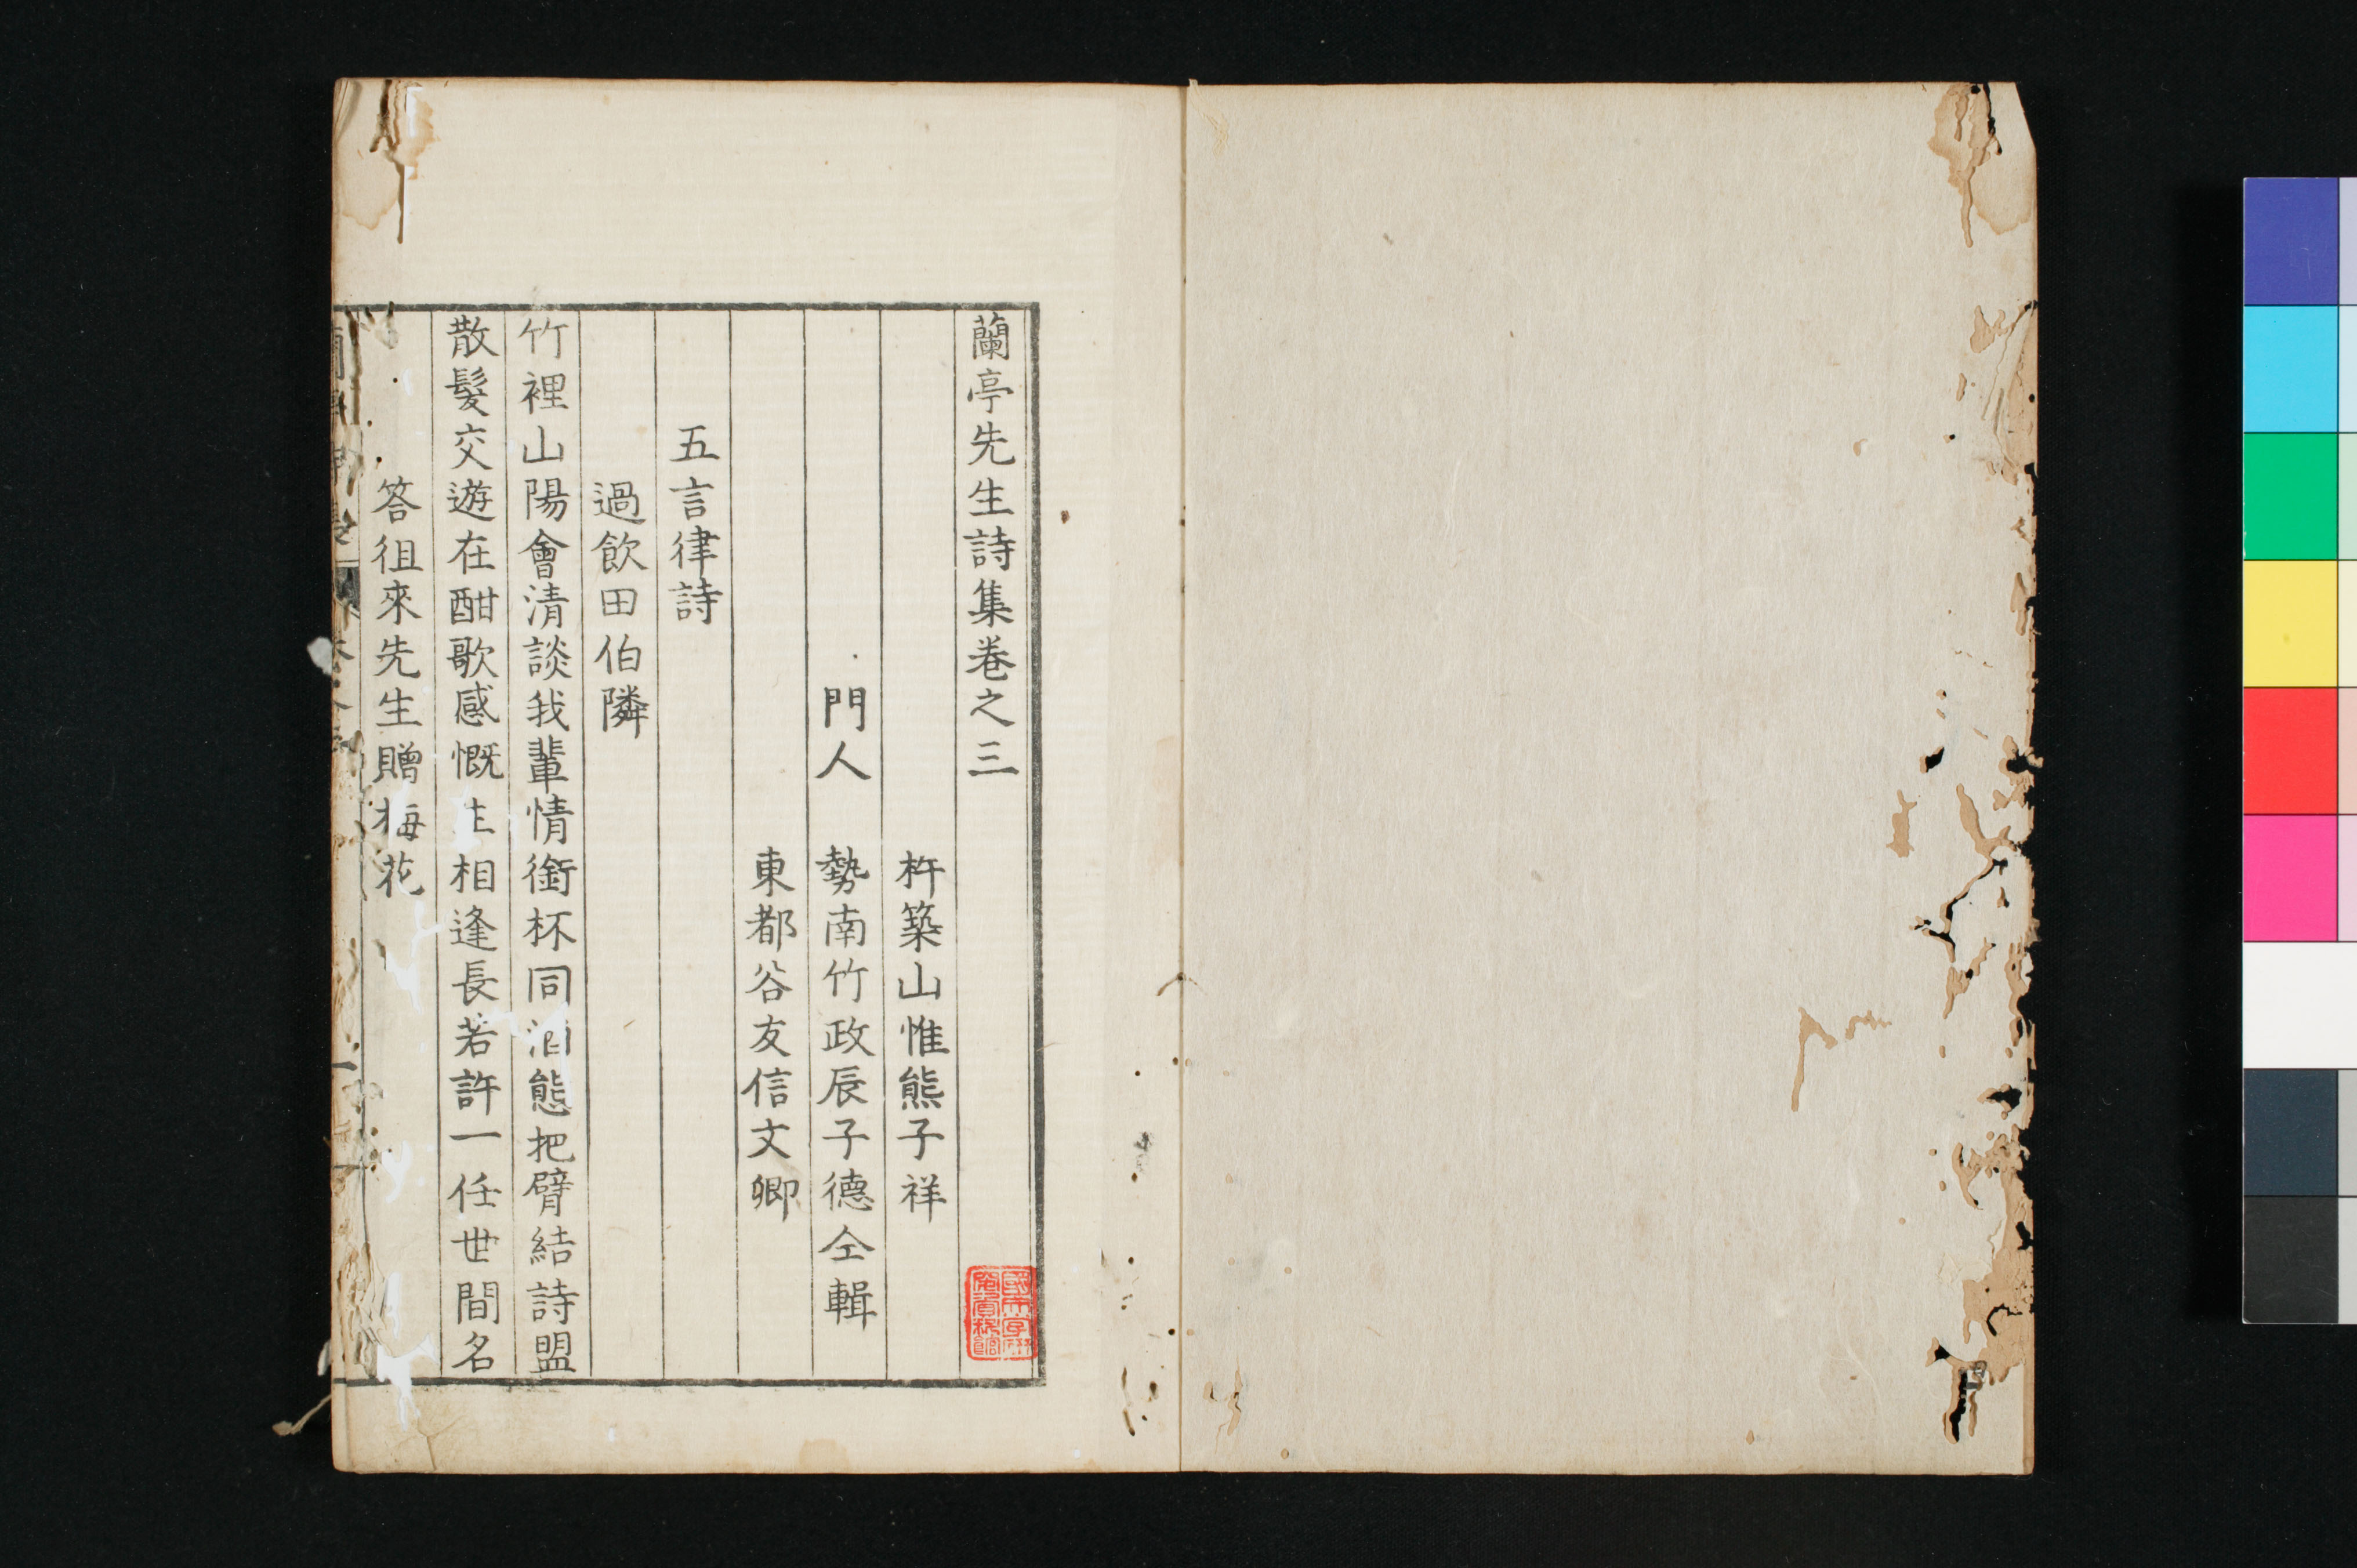 蘭亭先生詩集卷之三
杵築山惟熊子祥
門人　勢南竹政辰子德仝輯
東都谷友信文卿
五言律詩
過飲田伯隣
竹裡山陽會清談我輩情銜杯同酒態把臂結詩盟
散髮交遊在酣歌感慨生相逢長若許一任世間名
答徂來先生贈梅花